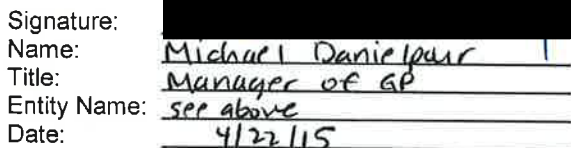 Signature:
Name: Michael Danielpour
Title: Manager of GP
Entity Name: see above
Date: 4/22/15